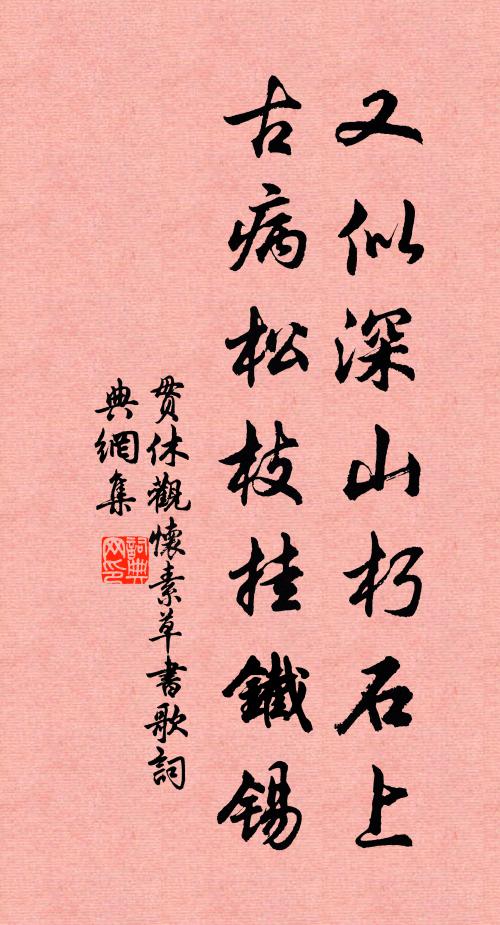 又似深山朽石上
古病松枝挂鐵錫
貫休觀懷素草書歌詞
典網集
詞典
網印